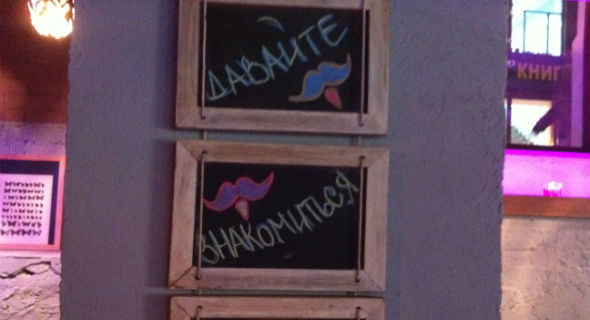 ДАВАЙТЕ
ЗНАКОМИТЬСЯ
КНИГ